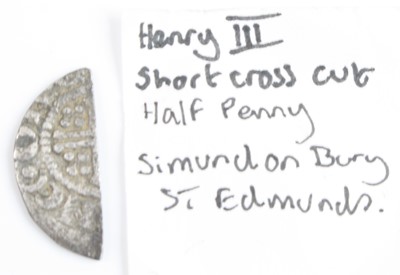 Henry III
Short cross cut
Half Penny
Simund on Bury
St Edmunds.